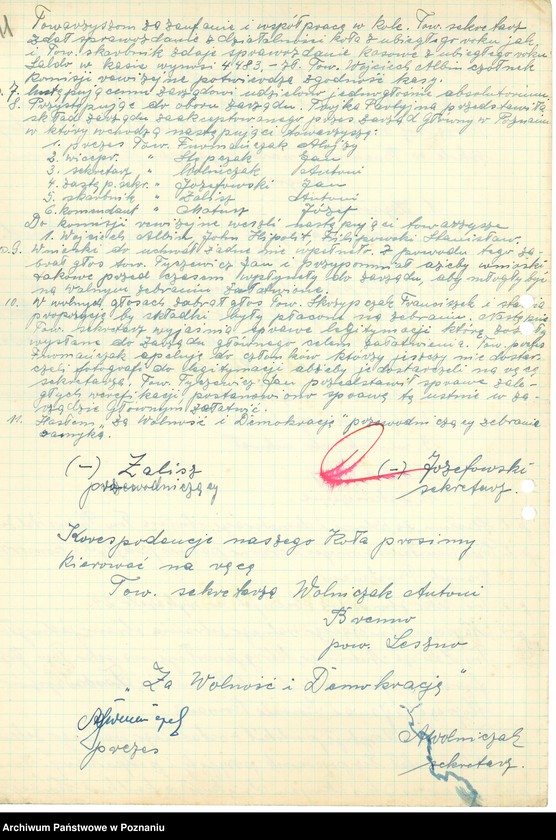 Towarzyszom za zaufanie i współpracę w kole. Tow. sekretarz
zdał sprawozdanie z działalności koła z ubiegłego roku jak
i Tow. skarbnik zdaje sprawozdanie kasowe z ubiegłego roku
Saldo w kasie wynosi 4483,- zł. Tow. Wojciech Albin członek
komisji rewizyjnej potwierdza zgodność kasy.
7. Ustępującemu zarządowi udzielono jednogłośnie absolutorium.
8. Przystępując do oboru zarządu. Trójka Partyjna przedstawiła
skład zarządu zaakceptowanego przez zarząd główny w Poznaniu
w który wchodzą następujący towarzyszą:
1. prezes Tow. Furmańczak Alojzy
2. wicepr. " Stępczak Jan
3. sekretarz " Wolniczak Antoni
4. zastę p. sekr. " Józefowski Jan
5. skarbnik " Zalisz Antoni
6. komendant " Matusz Józef
Do komisji rewizyjnej weszli następujący towarzysze
1. Wojciech Albin, Hipolit, Filipowski Stanisław.
9. Wnioski do uchwał żadne nie wpłynęło. Z powodu tego za-
brał głos tow. Tyszewicz Jan i przypomniał ażeby wnioski
takowe przed czasem wysłane do zarządu, aby mogły być
na walnym zebraniu załatwione.
10. W wolnych głosach zabrał głos Tow. Skrzypczak Franciszek i stawia
propozycję by składki były płacone na zebraniu. Następnie
Tow. sekretarz wyjaśnia sprawę legitymacji które zostały
wysłane do zarządu głównego celem załatwienia. Tow. prezes
Furmańczak apeluje do członków którzy jeszcze nie dostar-
czeli fotografi do legitymacji ażeby je dostarczeli na ręce
sekretarza. Tow. Tyszewicz Jan przedstawił sprawę zale-
głych weryfikacji postanowiono sprawę tę ustnie w za-
rządzie głównym załatwić.
11. Hasłem „Za Wolność i Demokrację" przewodniczący zebranie
zamyka.
(-) Zalisz
przewodniczący
(-) Józefowski
sekretarz.
Korespondencje naszego Koła prosimy
kierować na ręce
Tow. sekretarza Wolniczak Antoni
Brenno
pow. Leszno
„Za Wolność i Demokrację"
prezes
AWolniczak
sekretarz.
Archiwum Państwowe w Poznaniu